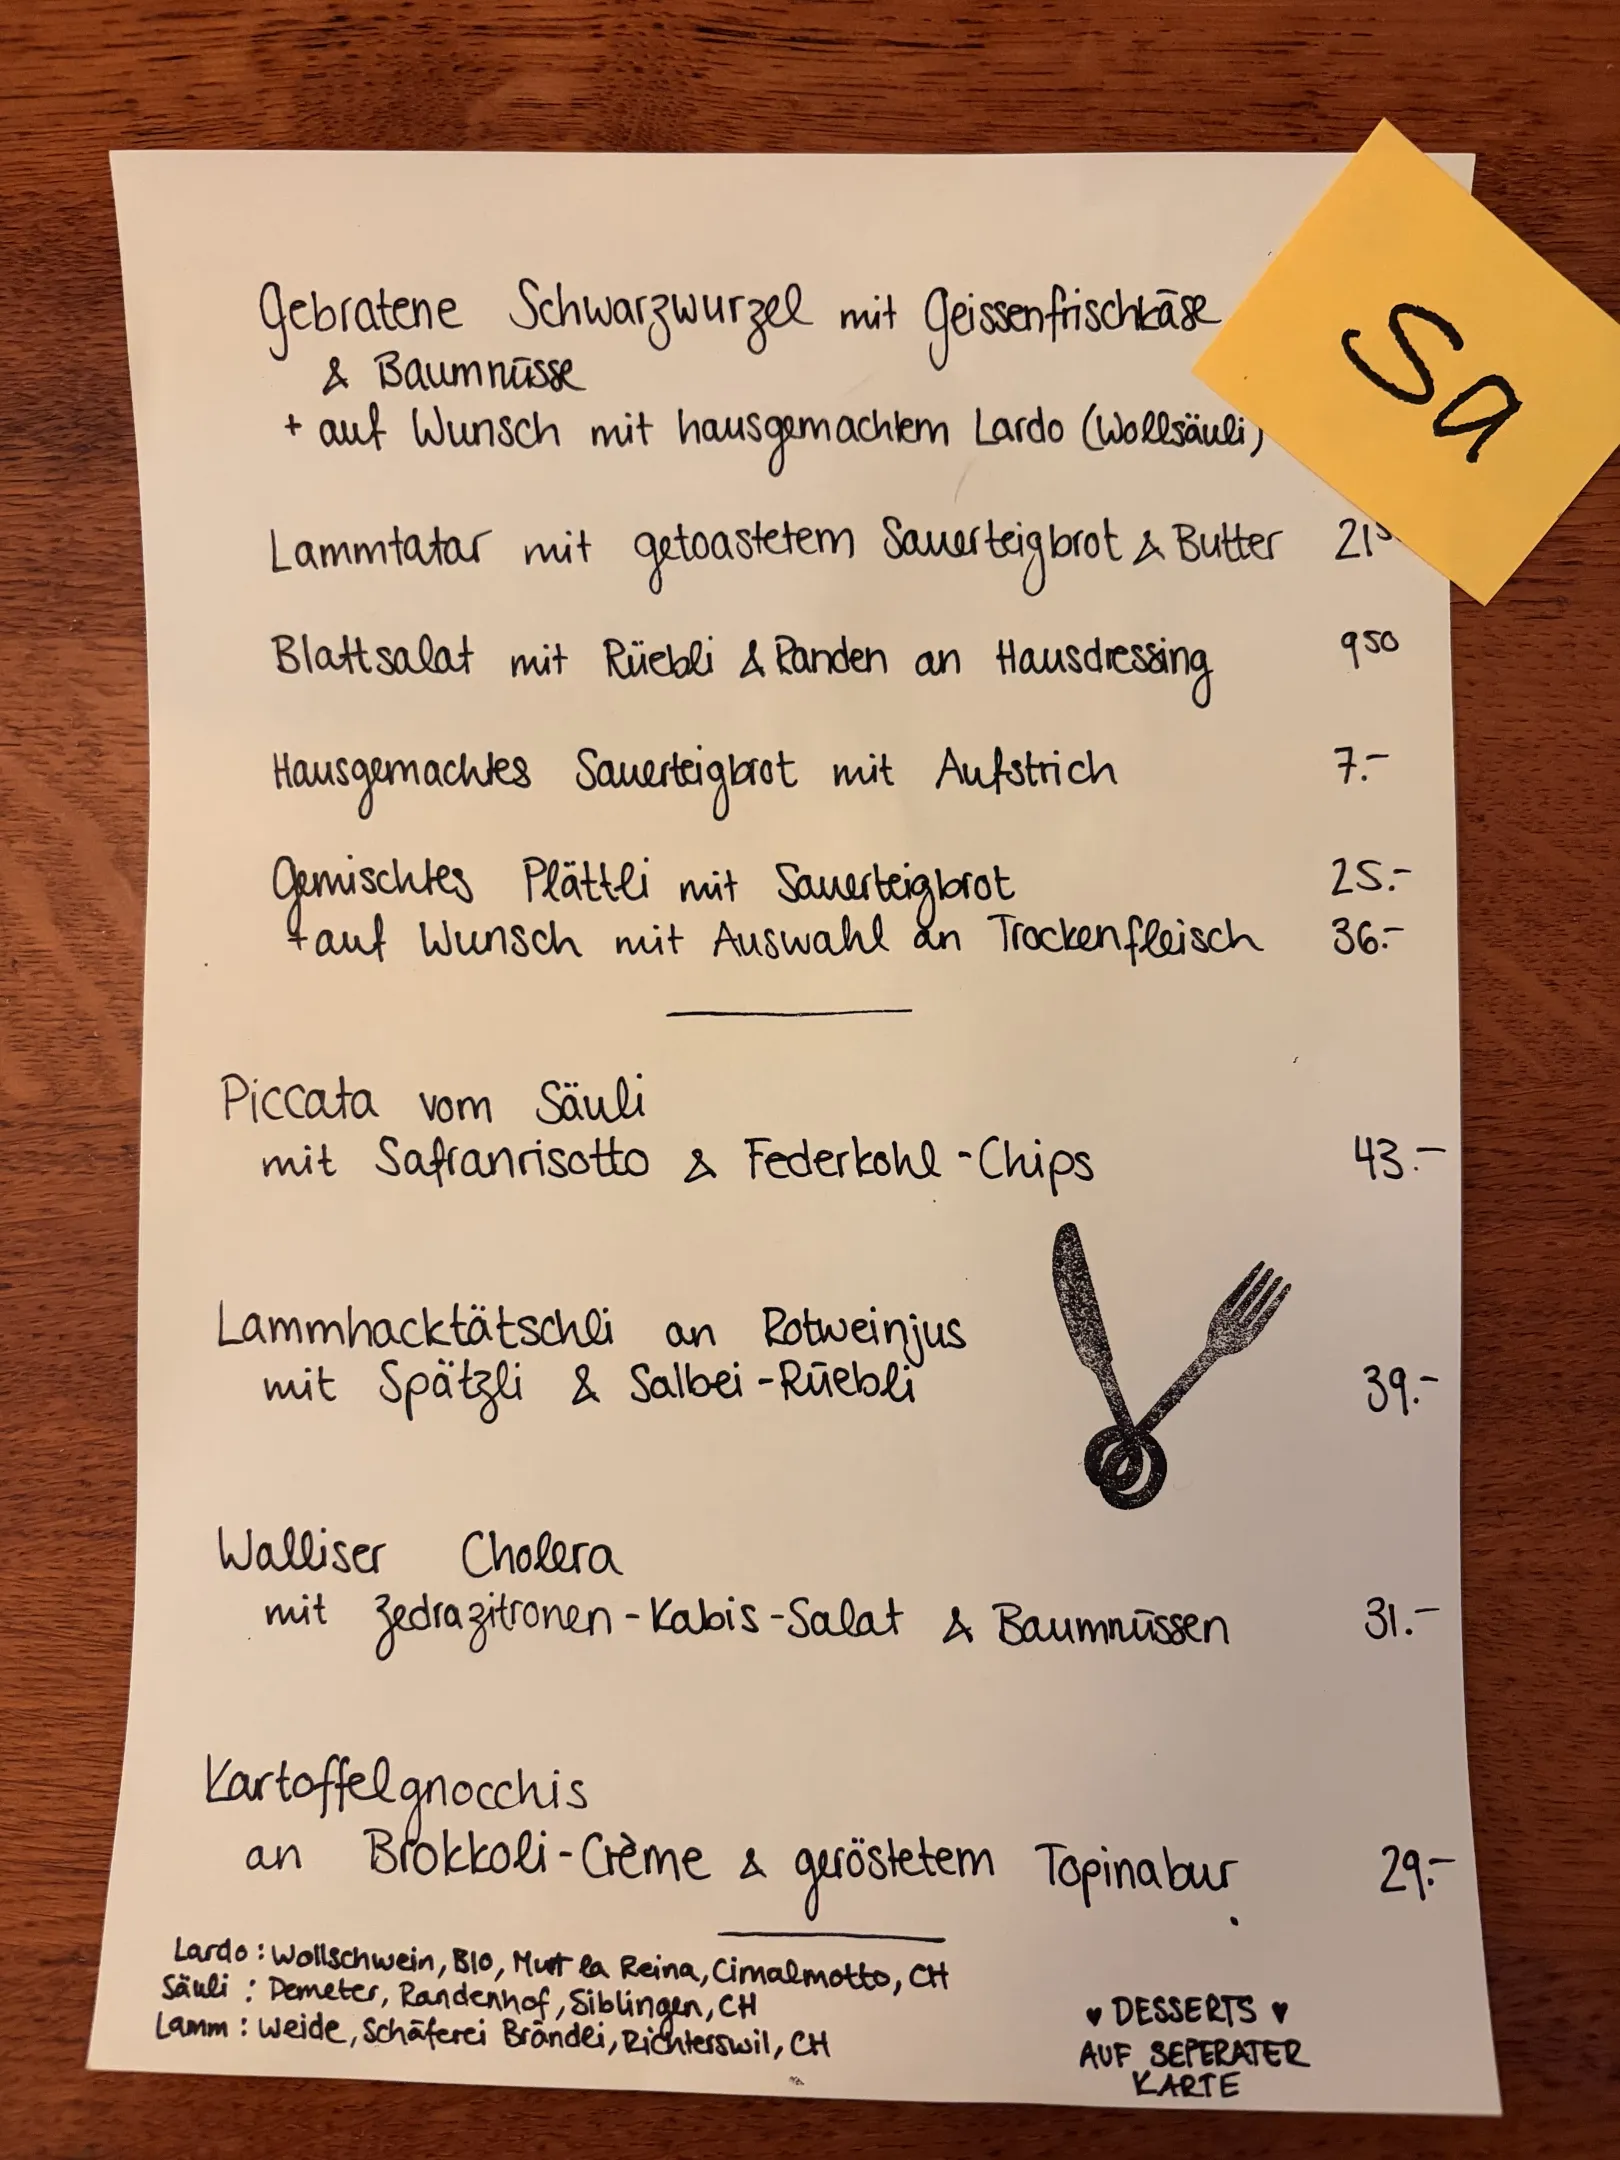 Gebratene Schwarzwurzel mit Geissenfrischkäse
& Baumnüsse
+ auf Wunsch mit hausgemachtem Lardo (Wollsäuli)
Sa
Lammtatar mit getoastetem Sauerteigbrot & Butter
Blattsalat mit Rüebli & Randen an Hausdressing 9 50
Hausgemachtes Sauerteigbrot mit Aufstrich 7.-
Gemischtes Plättli mit Sauerteigbrot 25.-
+ auf Wunsch mit Auswahl an Trockenfleisch 36.-
Piccata vom Säuli
mit Safranrisotto & Federkohl-Chips 43.-
Lammhacktätschli an Rotweinjus
mit Spätzli & Salbei-Rüebli 39.-
Walliser Cholera
mit Zedrazitronen-Kabis-Salat & Baumnüssen 31.-
Kartoffelgnocchis
an Brokkoli-Crème & geröstetem Topinabur 29.-
Lardo : Wollschwein, BIO, la Reina, Cimalmotto, CH
Säuli : Demeter, Randenhof, Siblingen, CH
Lamm : Weide, Schäferei Brändli, Richterswil, CH
♥ DESSERTS ♥
AUF SEPERATER
KARTE